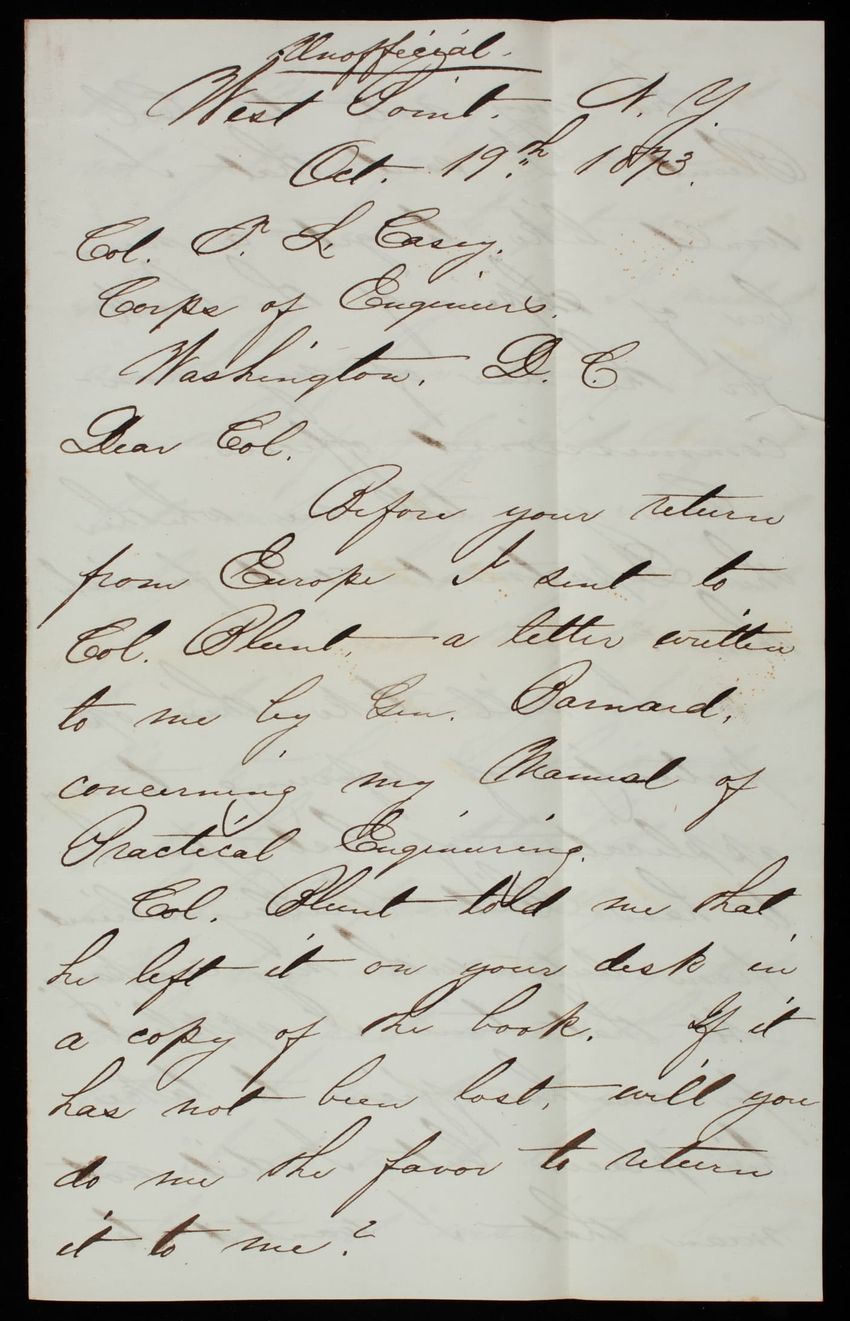 Unofficial.
West Point. N. Y.
Oct. 19th 1873.
Col. T. L. Casey.
Corps of Engineers.
Washington. D. C.
Dear Col.
Before your return
from Europe I sent to
Col. Blunt, a letter written
to me by Gen. Barnard,
concerning my Manual of
Practical Engineering.
Col. Blunt told me that
he left it on your desk in
a copy of the book. If it
has not been lost, will you
do me the favor to return
it to me?